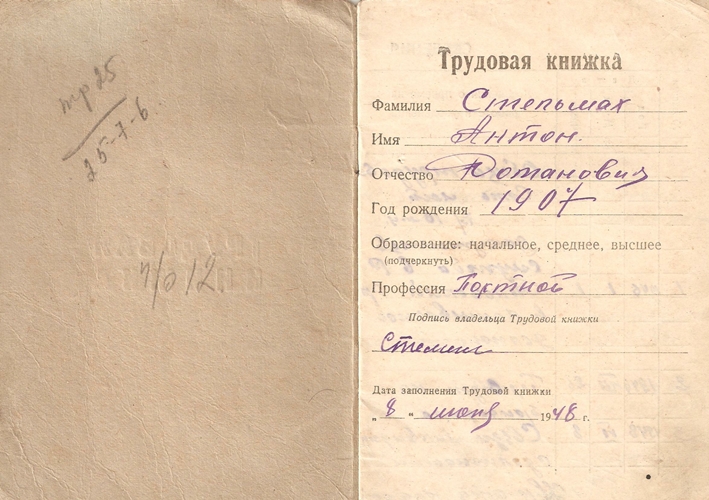 тр 25
25-7-6.
п/о 12
Трудовая книжка
Фамилия Стельмах
Имя Антон.
Отчество Романович
Год рождения 1907
Образование: начальное, среднее, высшее
(подчеркнуть)
Профессия Портной
Подпись владельца Трудовой книжки
Дата заполнения Трудовой книжки
„ 8 " июня 1948 г.